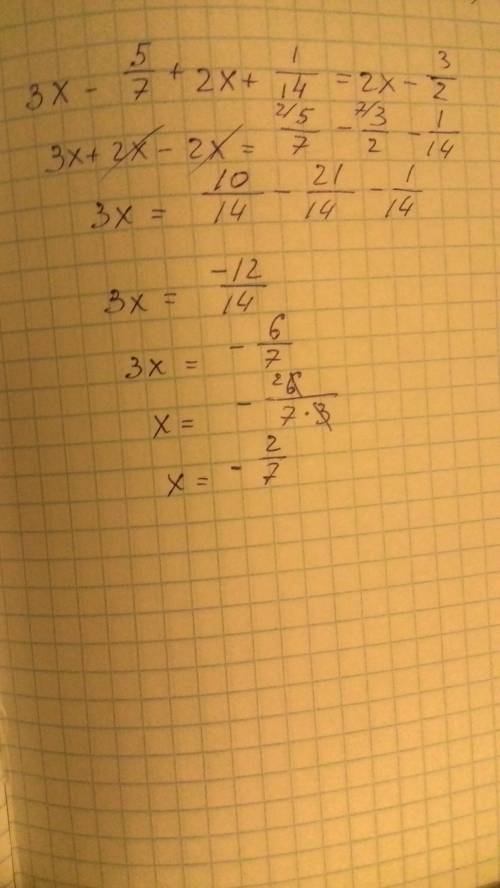 3x - 5/7 + 2x + 1/14 = 2x - 3/2
3x + 2x - 2x = 2/5/7 - 7/3/2 - 1/14
3x = 10/14 - 21/14 - 1/14
3x = -12/14
3x = - 6/7
x = - 2 6/7·3
x = - 2/7